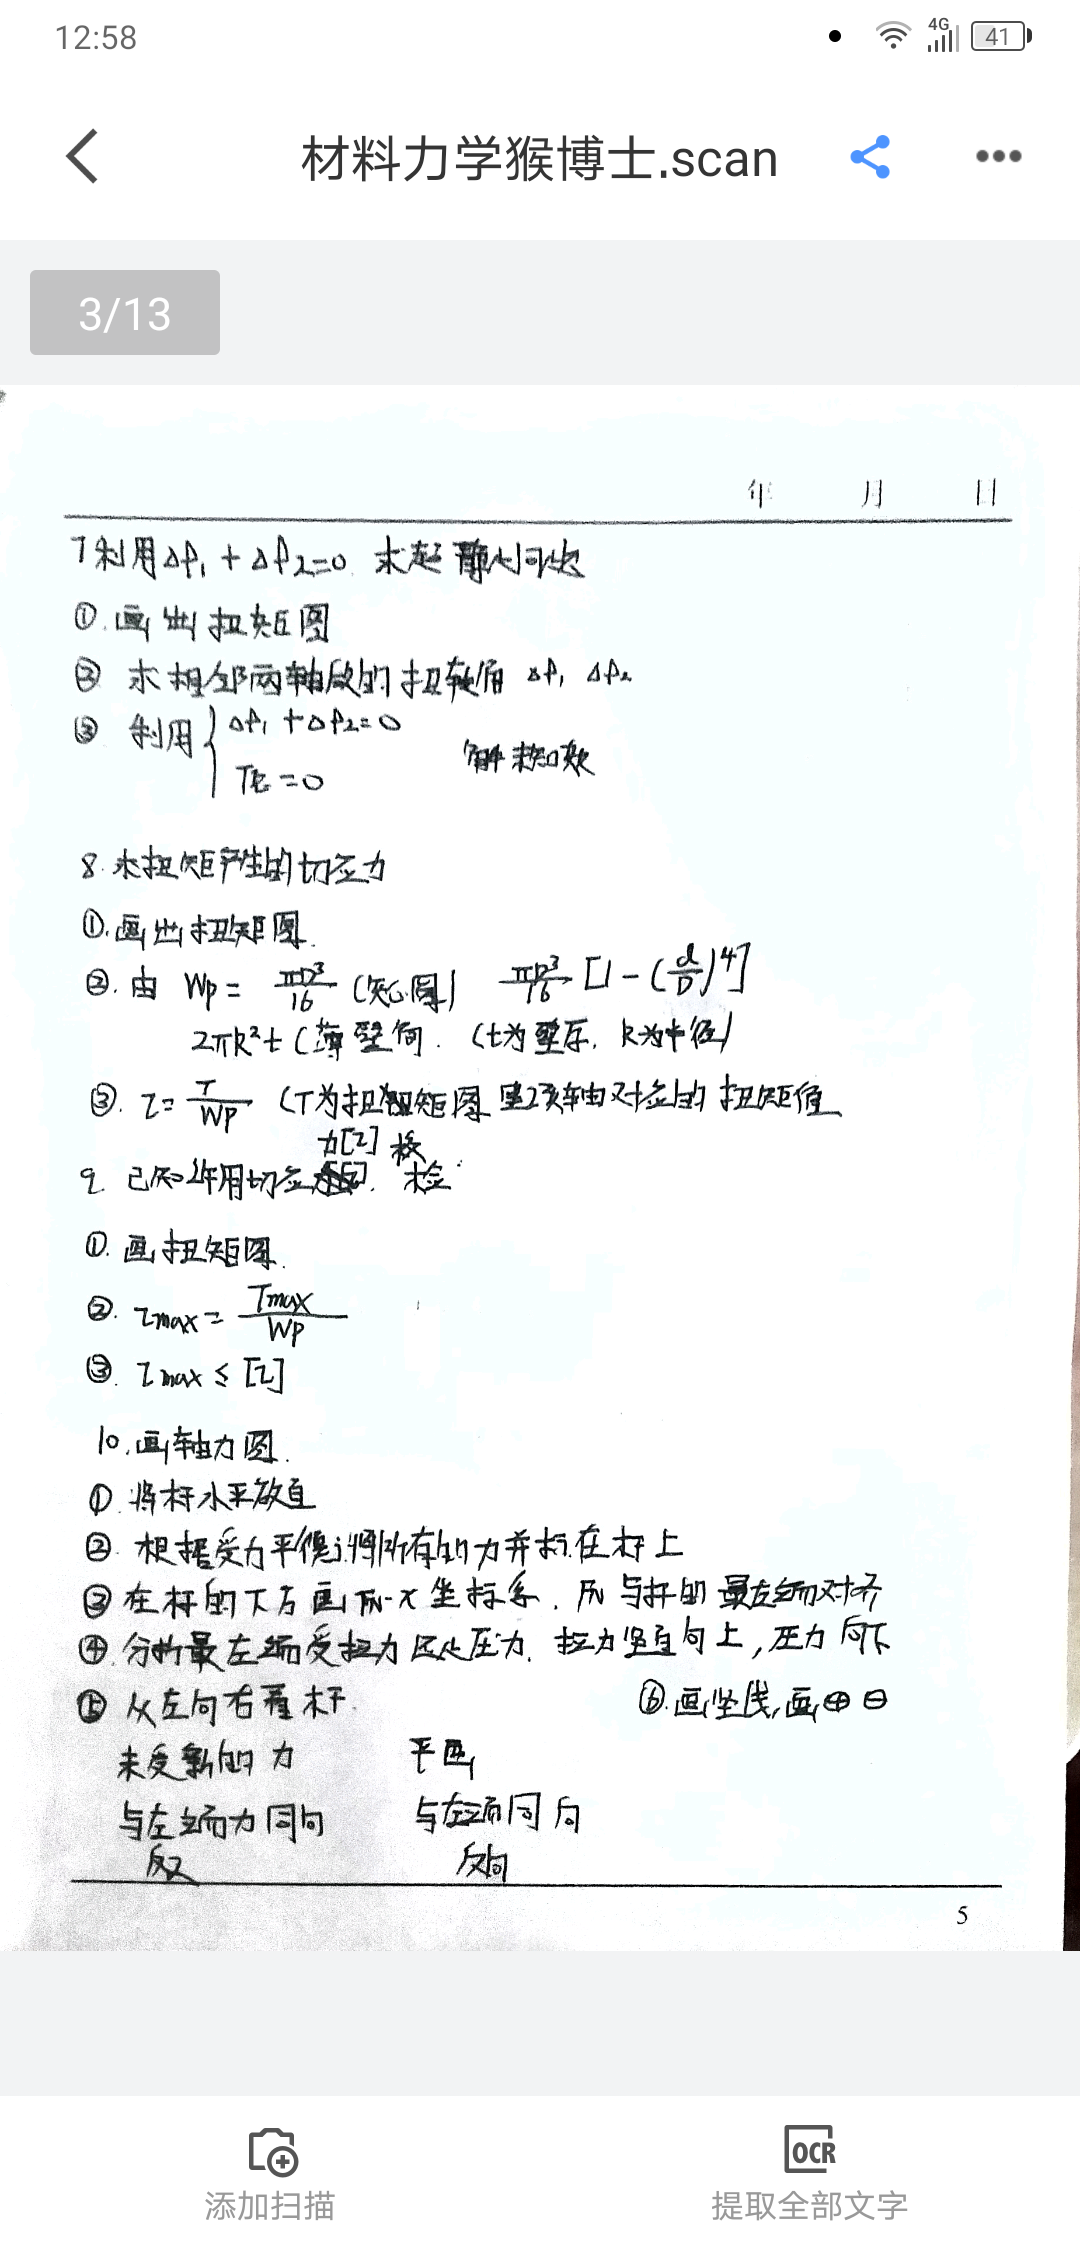 12:58
4G
41
材料力学猴博士.scan
3/13
年 月 日
7 利用 Δφ₁ + Δφ₂=0 求超静定问题
①.画出扭矩图
② 求相邻两轴段的扭转角 Δφ₁ Δφ₂
③ 利用 { Δφ₁ + Δφ₂=0
T总 =0 解未知数
8.求扭矩产生的切应力
①.画出扭矩图.
②.由 Wp = πD³/16 (实心圆) πD³/16 [1-(d/D)⁴]
2πR²t (薄壁筒. (t为壁厚, R为半径)
③. τ= T/Wp (T为扭矩图里该轴对应的扭矩值
力[τ] 校
9. 已知许用切应 , 检
①.画扭矩图.
②. τmax = Tmax/Wp
③. τmax ≤ [τ]
10.画轴力图.
① 将杆水平放直
② 根据受力平衡 将所有的力并标在杆上
③ 在杆的下方画 FN-x 坐标系. FN 与杆的最左端对齐
④.分析最左端受拉力还是压力. 拉力竖直向上,压力向下
⑤ 从左向右看杆. ⑥.画竖线,画⊕⊖
未受新的力 平画
与左端力同向 与左端同向
反 反向
5
添加扫描
OCR
提取全部文字